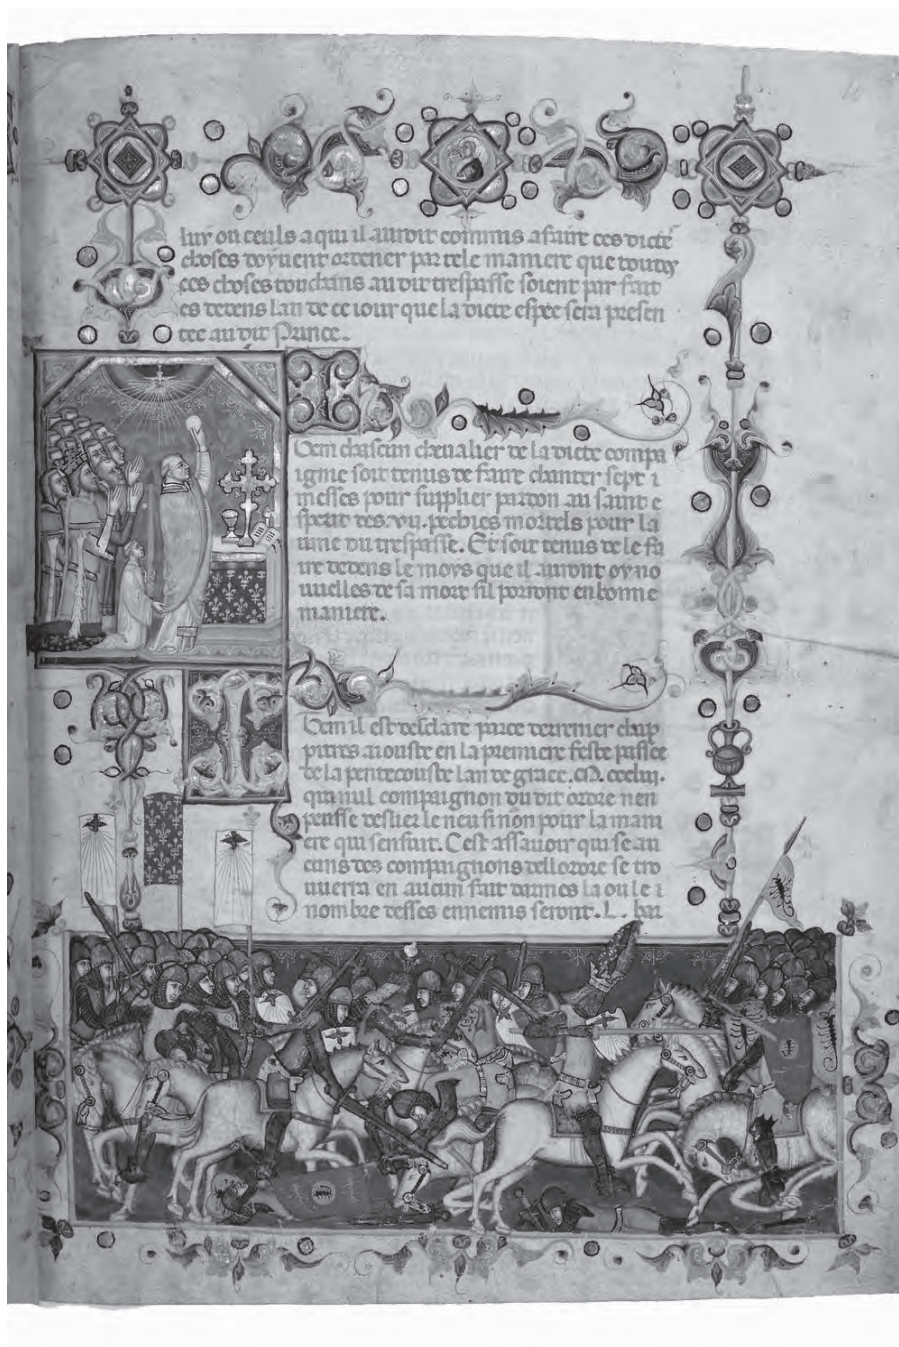 luy ou ceuls a qui il auroit commis a faire ces dictes
choses doyuent ordener par tele maniere que toutes
ces choses touchans au dit trespasse soient par fait
es dedens lan de ce iour que la dicte espee sera presen
tee au dit Prince.
Item chascun cheualier de la dicte compa
ignie soit tenus de faire chanter sept i
messes pour supplier pardon au saint e
sperit des .vii. pechies mortels pour la
ame du trespasse. Et soit tenus de le fa
ire dedens le moys que il auront oy no
uuelles de sa mort sil porront en bonne
maniere.
Item il est desclare par ce derrenier chap
pitres aiouste en la premiere feste passee
de la pentecouste lan de grace .M. ccc liii.
que nul compaignon du dit ordre nen
peusse deslier le neu si non pour la mani
ere qui sensuit. Cest assauoir qui se au
cuns des compaignons dellordre se tro
uuerra en aucun fait darmes la ou le i
nombre desses ennemis seront .L. bar